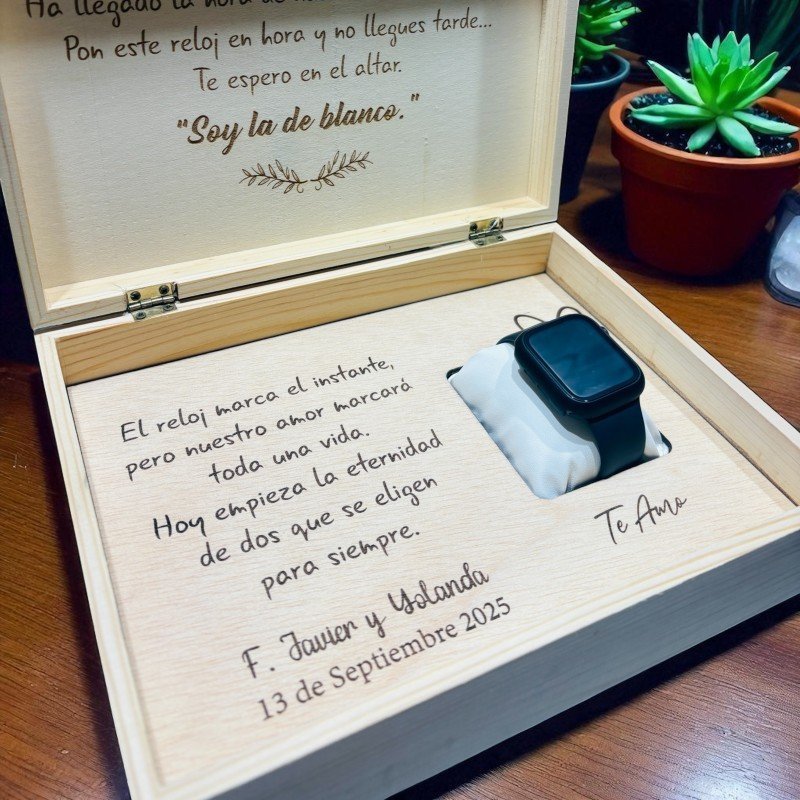 Ha llegado la hora de
Pon este reloj en hora y no llegues tarde...
Te espero en el altar.
"Soy la de blanco."
El reloj marca el instante,
pero nuestro amor marcará
toda una vida.
Hoy empieza la eternidad
de dos que se eligen
para siempre.
Te Amo
F. Javier y Yolanda
13 de Septiembre 2025